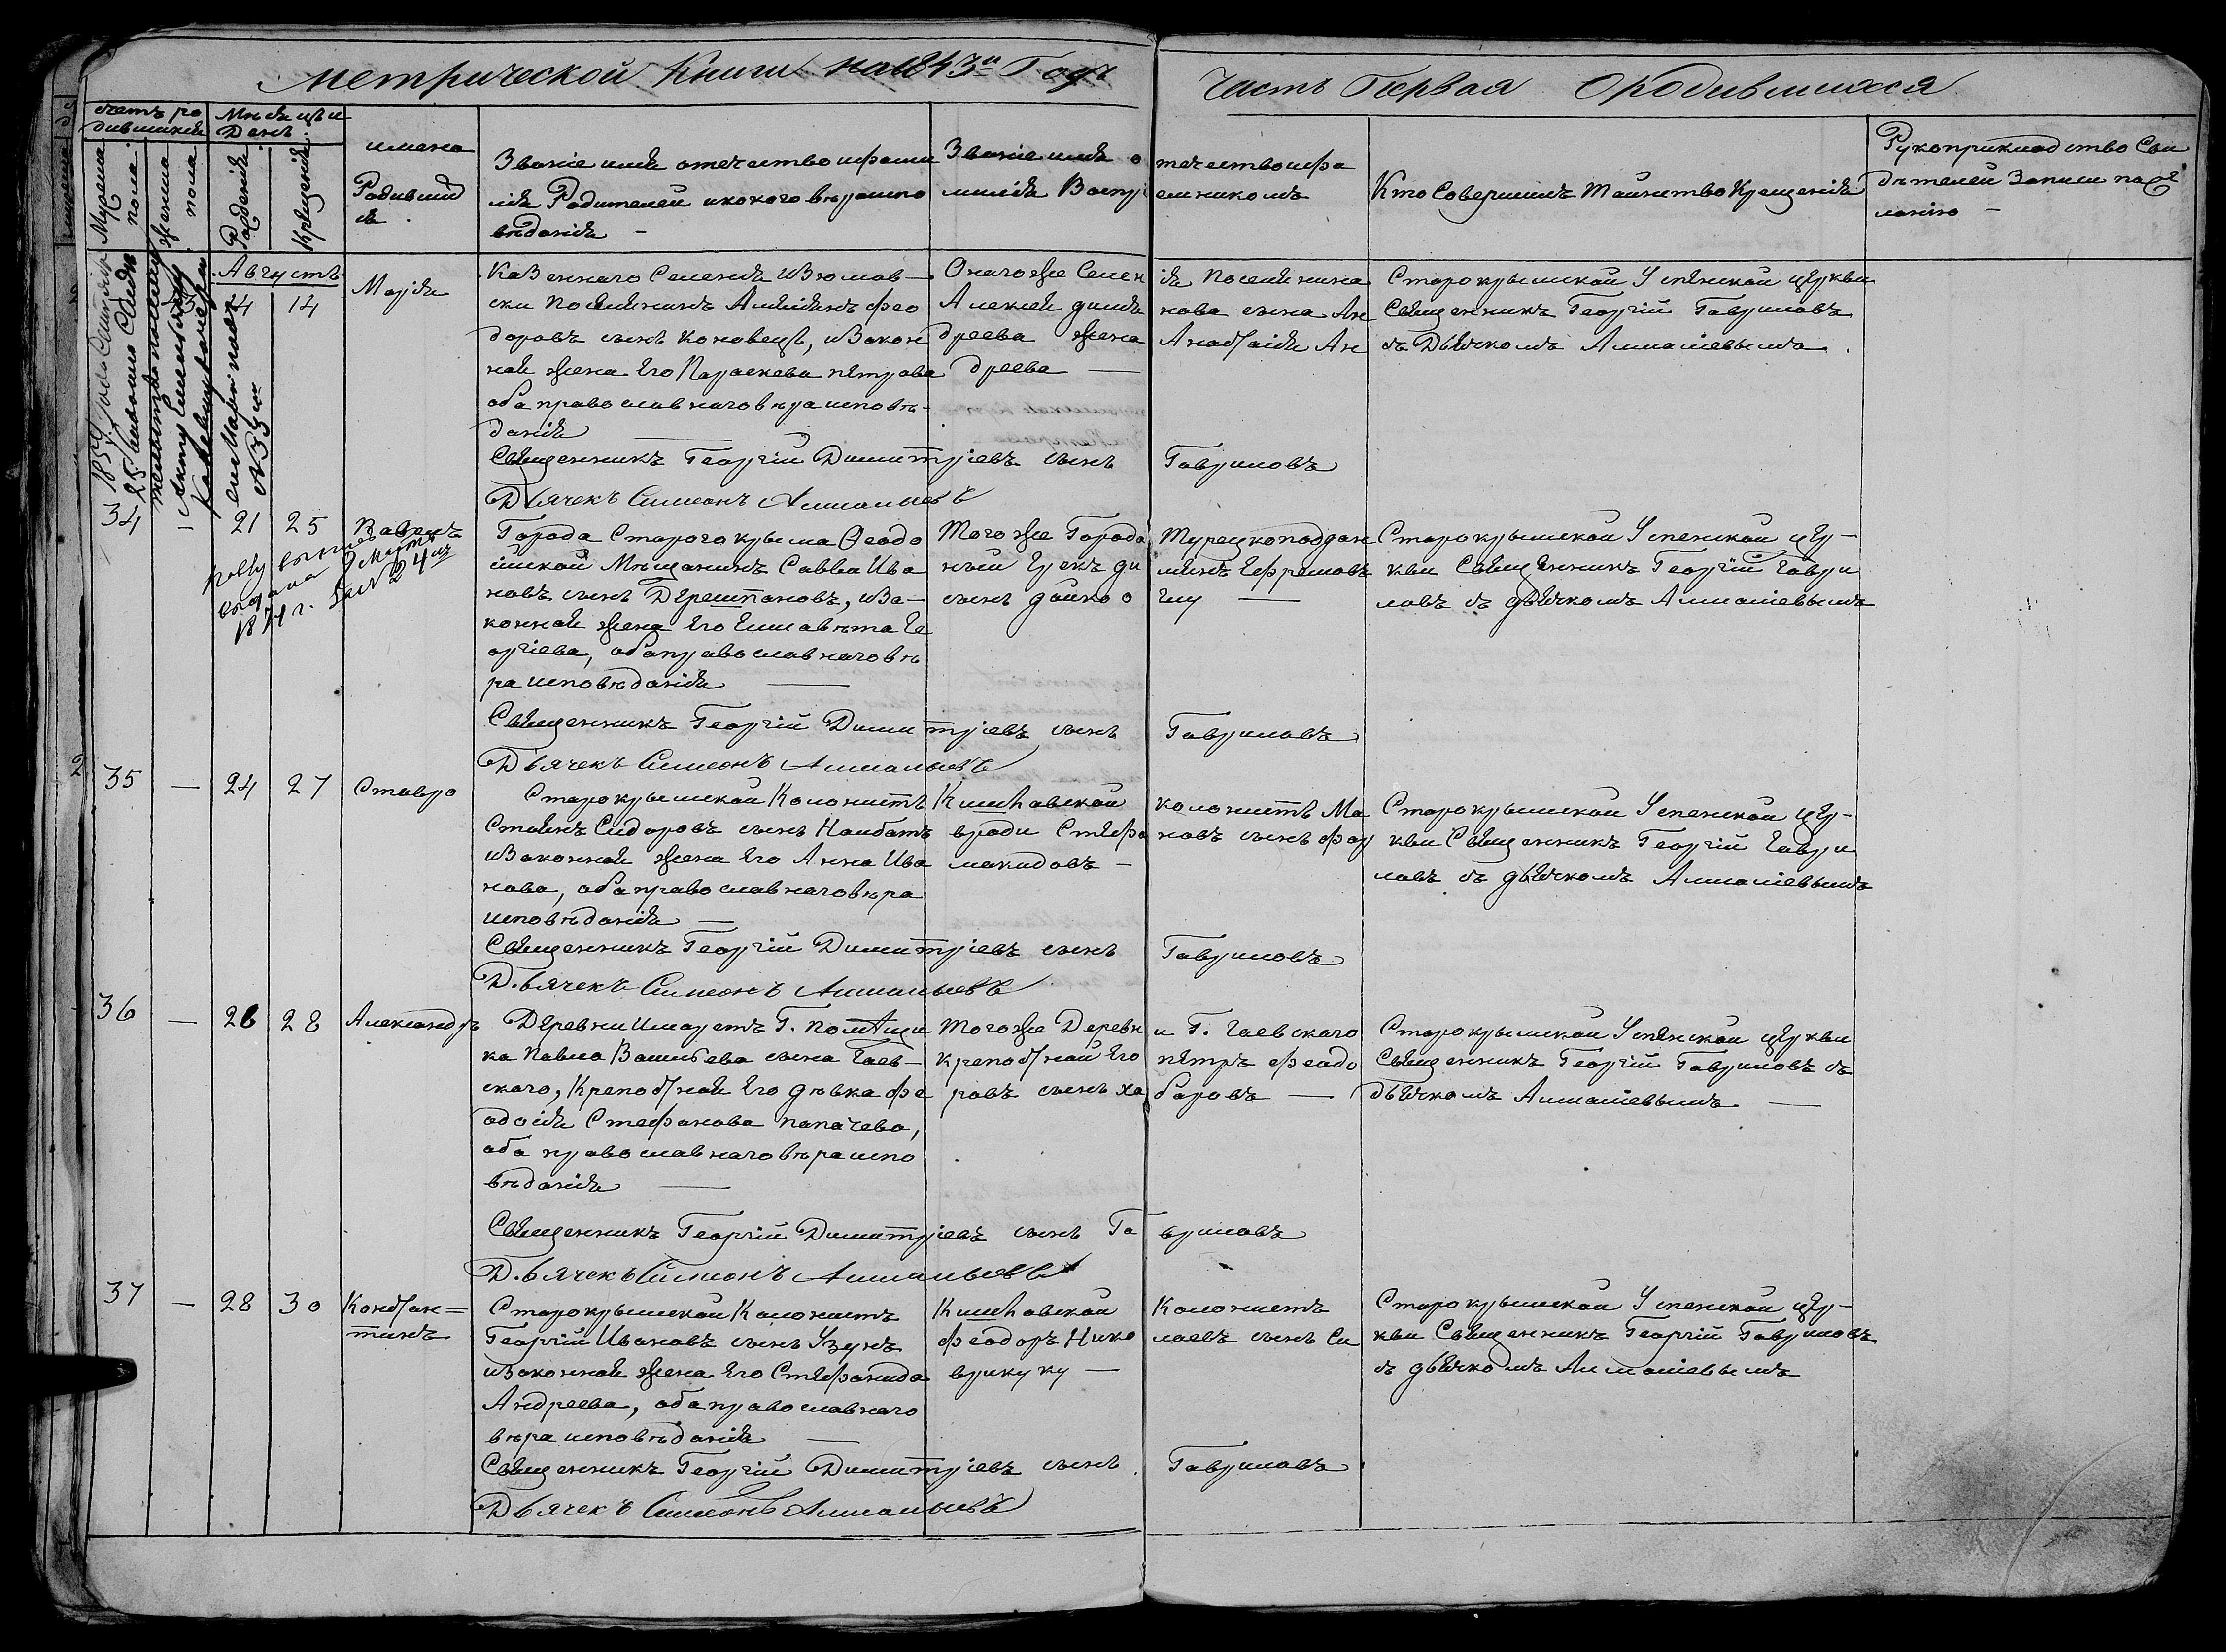 Метрической Книги на 1843й Годъ Часть Первая О Родившихся
Счетъ ро
дившихся
Мужеска
пола
Женска
пола
Мѣсяцъ и
День
Рожденія
Крещенія
имена
Родивших
ся
Званіе имя отечество и фами
лія Родителей и какого вѣроиспо
вѣданія –
Званіе имя отечество и фа
милія Воспріемникомъ
Кто Совершилъ Таинство Крещенія
Рукоприкладство Сви
дѣтелей Записи по же
ланію –
Августъ
4 14 Марія
Казеннаго Селенія Изюмов–
ски Поселянинъ Амлианъ Фео
доровъ сынъ Коновецъ, и закон
ная жена Его Параскева Петрова
оба православнаго вѣра исповѣ–
данія
Онаго же Селенія Поселянина
Алексея нова сына Ан
дреева жена Анастасія Ан
дреева —
Старокрымской Успенской Церкви
Священникъ Георгій Гавриловъ
съ Дьячкомъ Алманіевымъ.
1859 года
25
Марія подъ
№ 33
Священникъ Георгій Димитріевъ сынъ Гавриловъ
Дьячекъ Симеонъ Алманьевъ
34 – 21 25
Города Старого крыма Феодо
ійской Мещанинъ Савва Ива
новъ сынъ Дерештановъ, и за–
конная жена Его Елисавета Ге
оргіева, оба православнаго вѣ
ра исповѣданія —
Того же Города Турецкоподдан
ный Грекъ Ди Ефремовъ
сынъ
Старокрымской Успенской Цер–
кви Священникъ Георгій Гаври
ловъ съ дьячкомъ Алманіевымъ
выдана 9 Марта
1874 г. За № 24м
Священникъ Георгій Димитріевъ сынъ Гавриловъ
Дьячекъ Симеонъ Алманьевъ
35 – 24 27 Ставро
Старокрымской Колонистъ
Стоянъ Сидоровъ сынъ Налбатъ
и законная жена Его Анна Ива
нова, оба православнаго вѣра
исповѣданія —
Кишлавской колонистъ Ма
вроди Стефановъ сынъ Фар
макидовъ –
Старокрымской Успенской Цер–
кви Священникъ Георгій Гаври
ловъ съ дьячкомъ Алманіевымъ
Священникъ Георгій Димитріевъ сынъ Гавриловъ
Дьячекъ Симеонъ Алманьевъ
36 – 26 28 Александръ
Деревни Имаретъ Г. Помѣщи
ка Павла Васильева сына Гаев–
скаго, Крепостной Его девка Фе
одосія Стефанова Папачева,
оба православнаго вѣра испо
вѣданія —
Того же Деревни Г. Гаевскаго
крепостной Его Петръ Феодо
ровъ сынъ Хабаровъ —
Старокрымской Успенской Церкви
Священникъ Георгій Гавриловъ съ
Дьячкомъ Алманіевымъ —
Священникъ Георгій Димитріевъ сынъ Гавриловъ
Дьячекъ Симеонъ Алманьевъ
37 – 28 30 Констан=
тинъ
Старокрымской Колонистъ
Георгій Ивановъ сынъ Узунъ
и законная жена Его Стефанида
Андреева, оба православнаго
вѣра исповѣданія —
Кишлавской Колонистъ
Феодоръ Николаевъ сынъ Си
врикуку —
Старокрымской Успенской Цер–
кви Священникъ Георгій Гавриловъ
съ дьячкомъ Алманіевымъ
Священникъ Георгій Димитріевъ сынъ Гавриловъ
Дьячекъ Симеонъ Алманьевъ